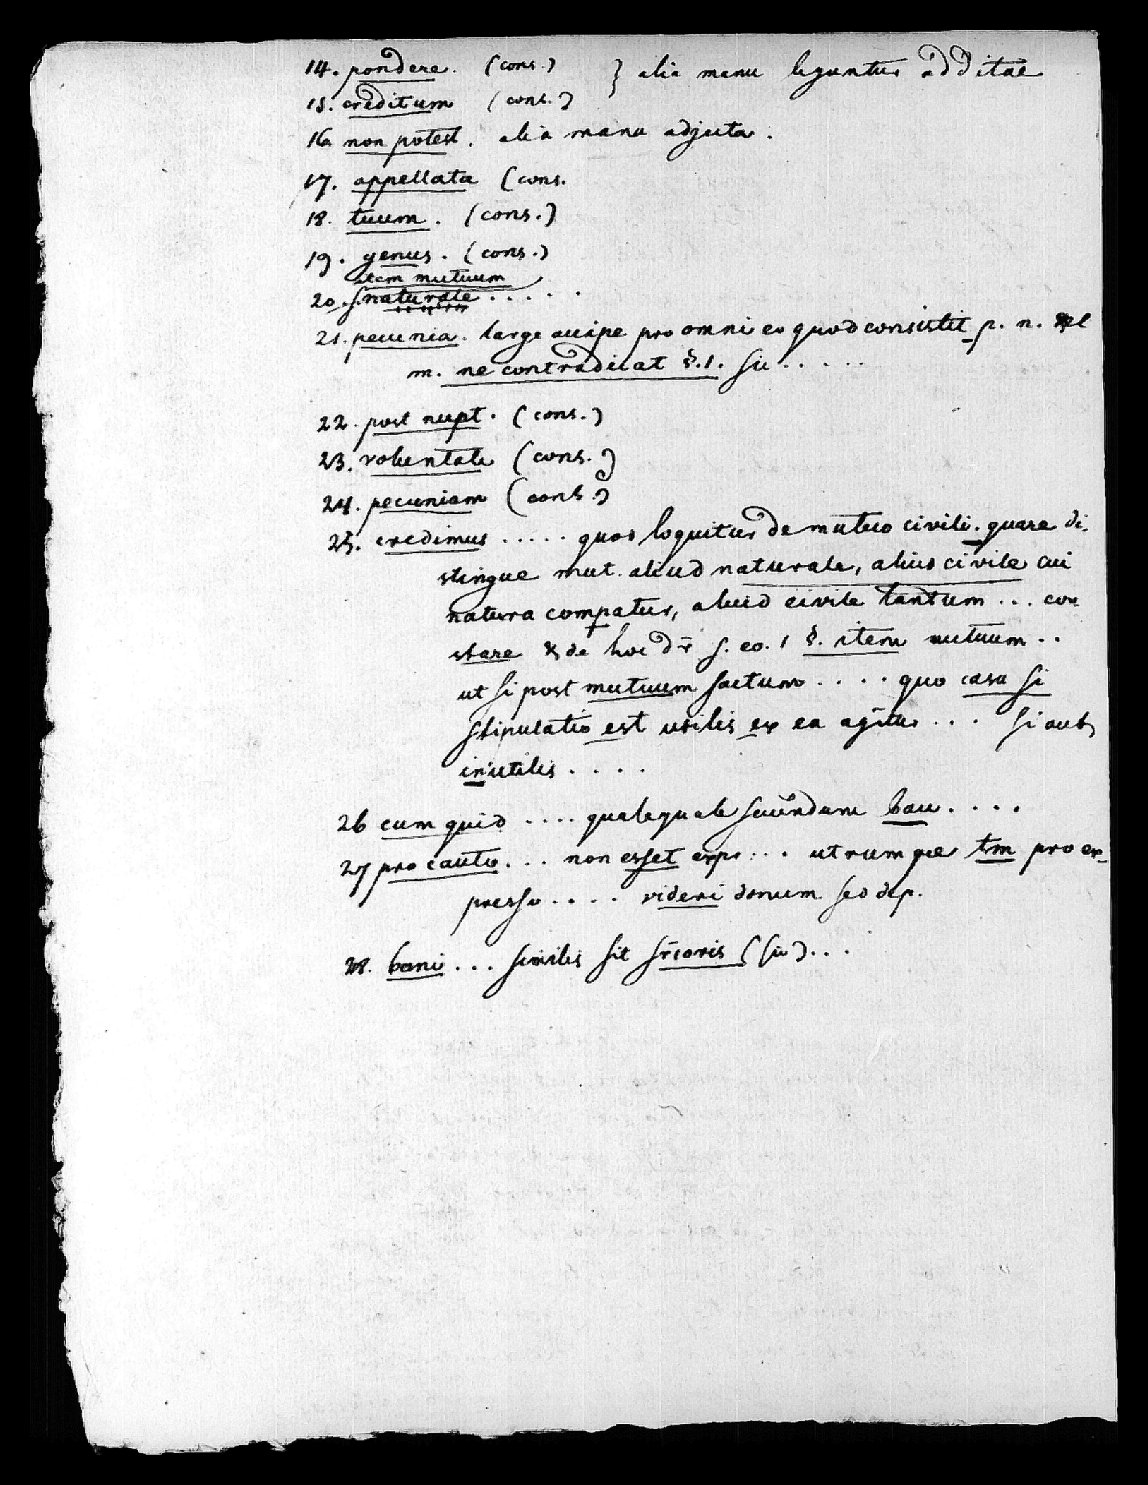 14. pondere. (cons.) } alia manu leguntur additae
15. creditum (cons.)
16 non potest. alia manu adjecta.
17. appellata (cons.
18. tuum. (cons.)
19. genus. (cons.)
item mutuum
20. naturale .....
21. pecunia. large accipe pro omni eo quod consistit p. n. vel
m. ne contradicat §.1. sic .....
22. post nupt. (cons.)
23. voluntate (cons.)
24. pecuniam (cons.)
25. credimus ..... quod loquitur de mutuo civili. quare di-
stingue mut. aliud naturale, aliud civile cui
natura compatur, aliud civile tantum ... con
stare & de hoc dr̄ s. eo. l §. item mutuum ..
ut si post mutuum factum .... quo casu si
stipulatio est utilis ex ea agitur ... si aut
inutilis ....
26 cum quid .... qualequale secundum bau ....
27 pro cautio ... non esset expr ... utrumque tm pro ex-
presso .... videri donum sed dep.
28. bani ... similis sit sr̄ioris (sic) ...